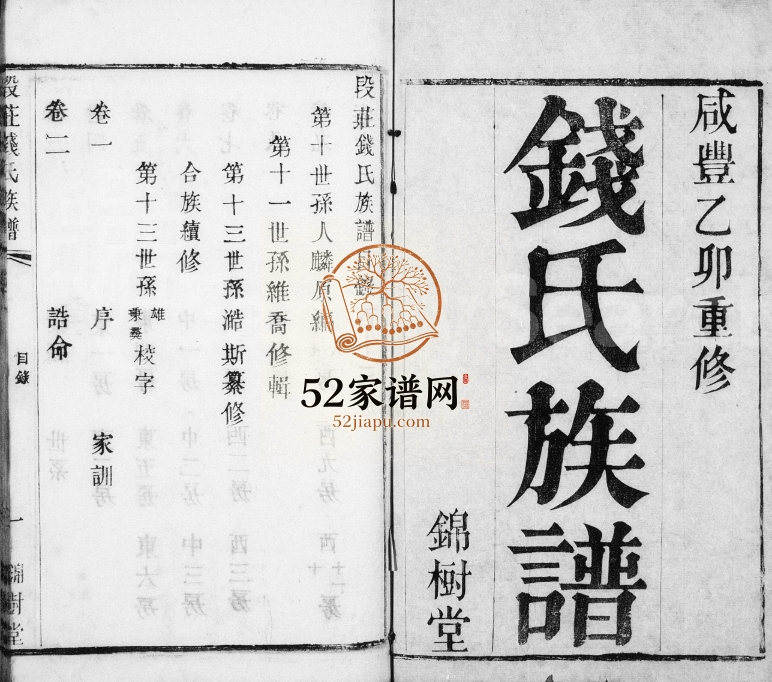 咸豐乙卯重修
錢氏族譜
錦樹堂
段莊錢氏族譜目錄
第十世孫人麟原編
第十一世孫維喬修輯
第十三世孫湝斯纂修
合族續修
第十三世孫 雄 校字
卷一 序 家訓
卷二 誥命 世系
段莊錢氏族譜 目錄 一 錦樹堂
52家谱网
52jiapu.com